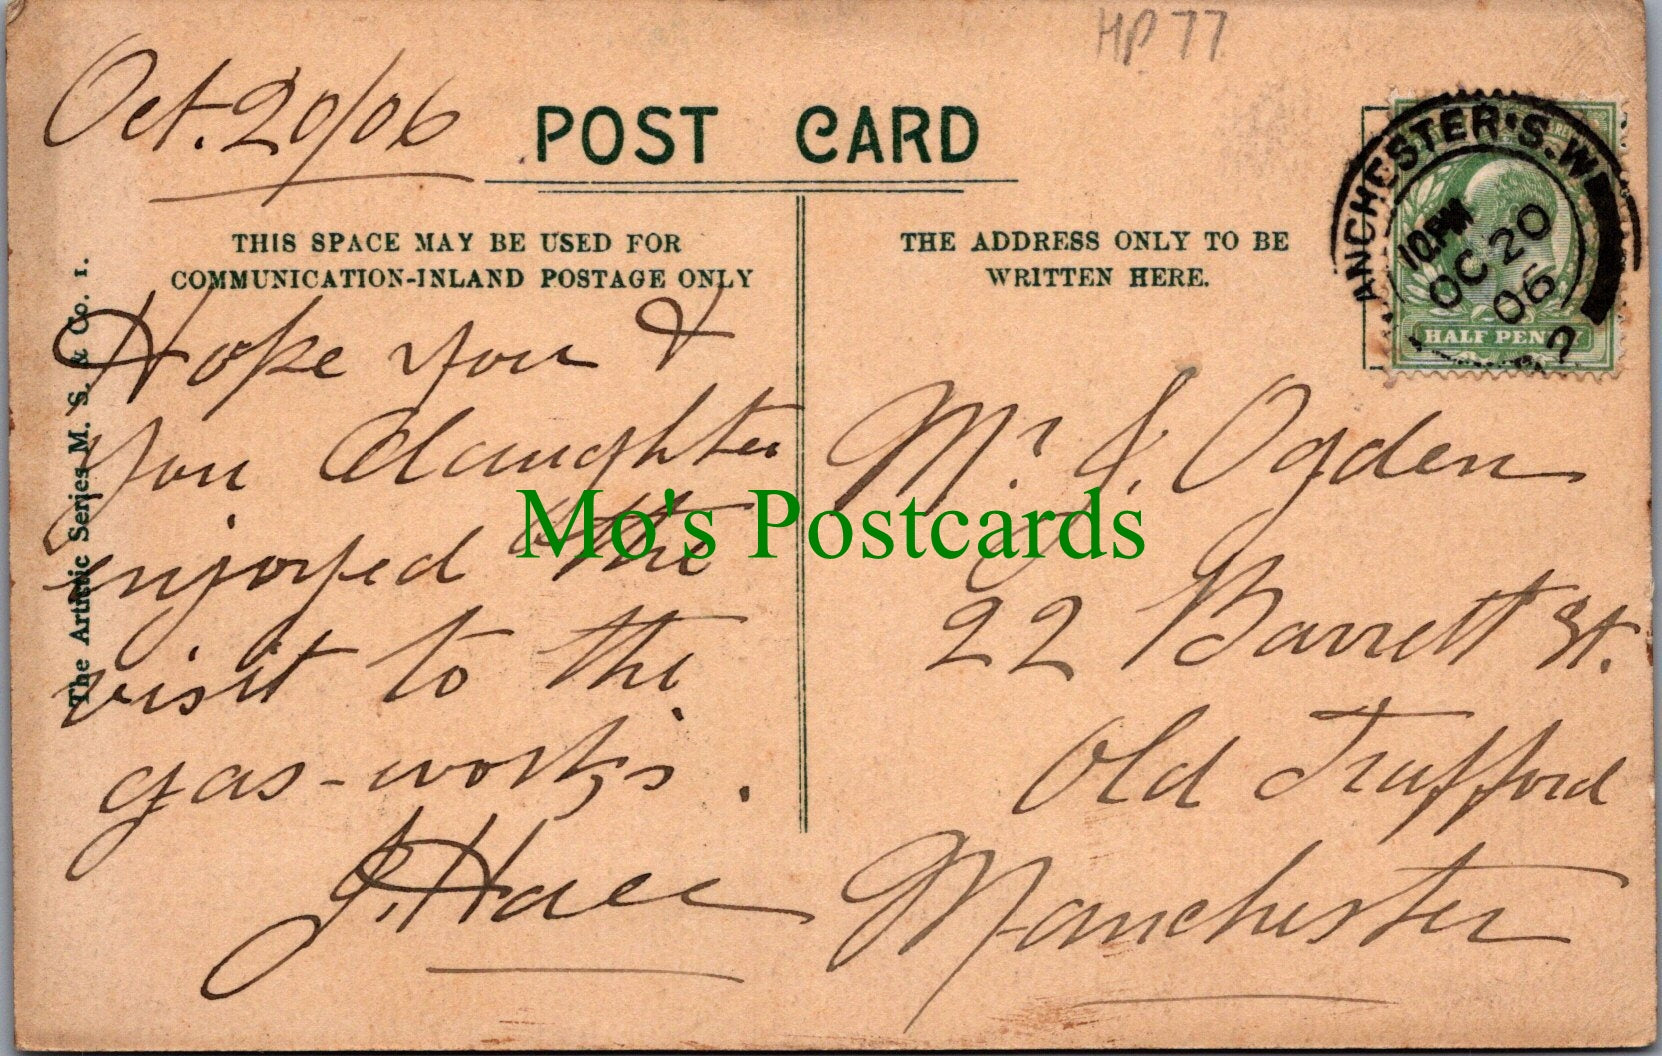 HP 77
Oct. 20/06
POST CARD
THIS SPACE MAY BE USED FOR
COMMUNICATION-INLAND POSTAGE ONLY
THE ADDRESS ONLY TO BE
WRITTEN HERE.
ANCHESTER.S.W
10.PM
OC 20
06
2
HALF PENNY
The Artistic Series M. S. & Co. 1.
Hope you &
your daughter
enjoyed the
visit to the
gas-works.
J.
Mr. J. Ogden
22 Barrett St.
Old Trafford
Manchester
Mo's Postcards